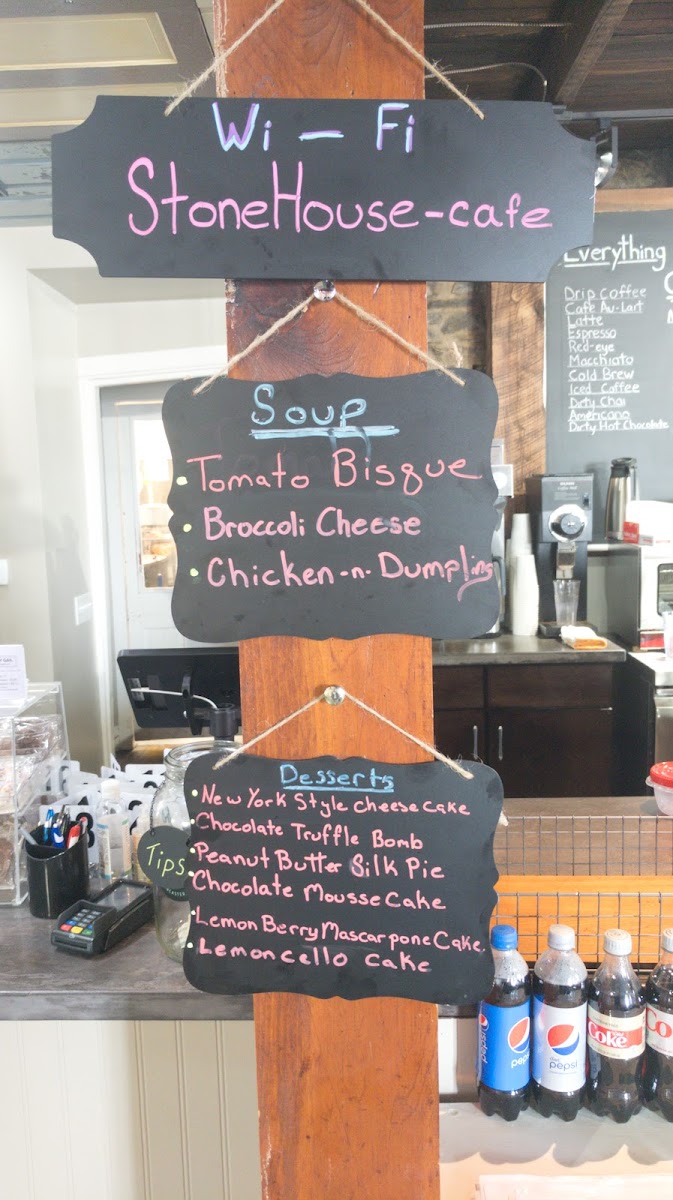 Wi - Fi
StoneHouse-cafe
Soup
• Tomato Bisque
• Broccoli Cheese
• Chicken-n-Dumpling
Desserts
• New York Style cheese cake
• Chocolate Truffle Bomb
• Peanut Butter Silk Pie
• Chocolate Mousse Cake
• Lemon Berry Mascarpone Cake.
• Lemoncello cake
Everything
Drip Coffee
Cafe Au-Lart
Latte
Espresso
Red-eye
Macchiato
Cold Brew
Iced Coffee
Dirty Chai
Americano
Dirty Hot Chocolate
Tips
pepsi
diet
pepsi
Coke